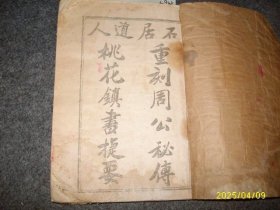 石居道人
重刻周公祕傳
桃花鎮書提要
2025/04/09